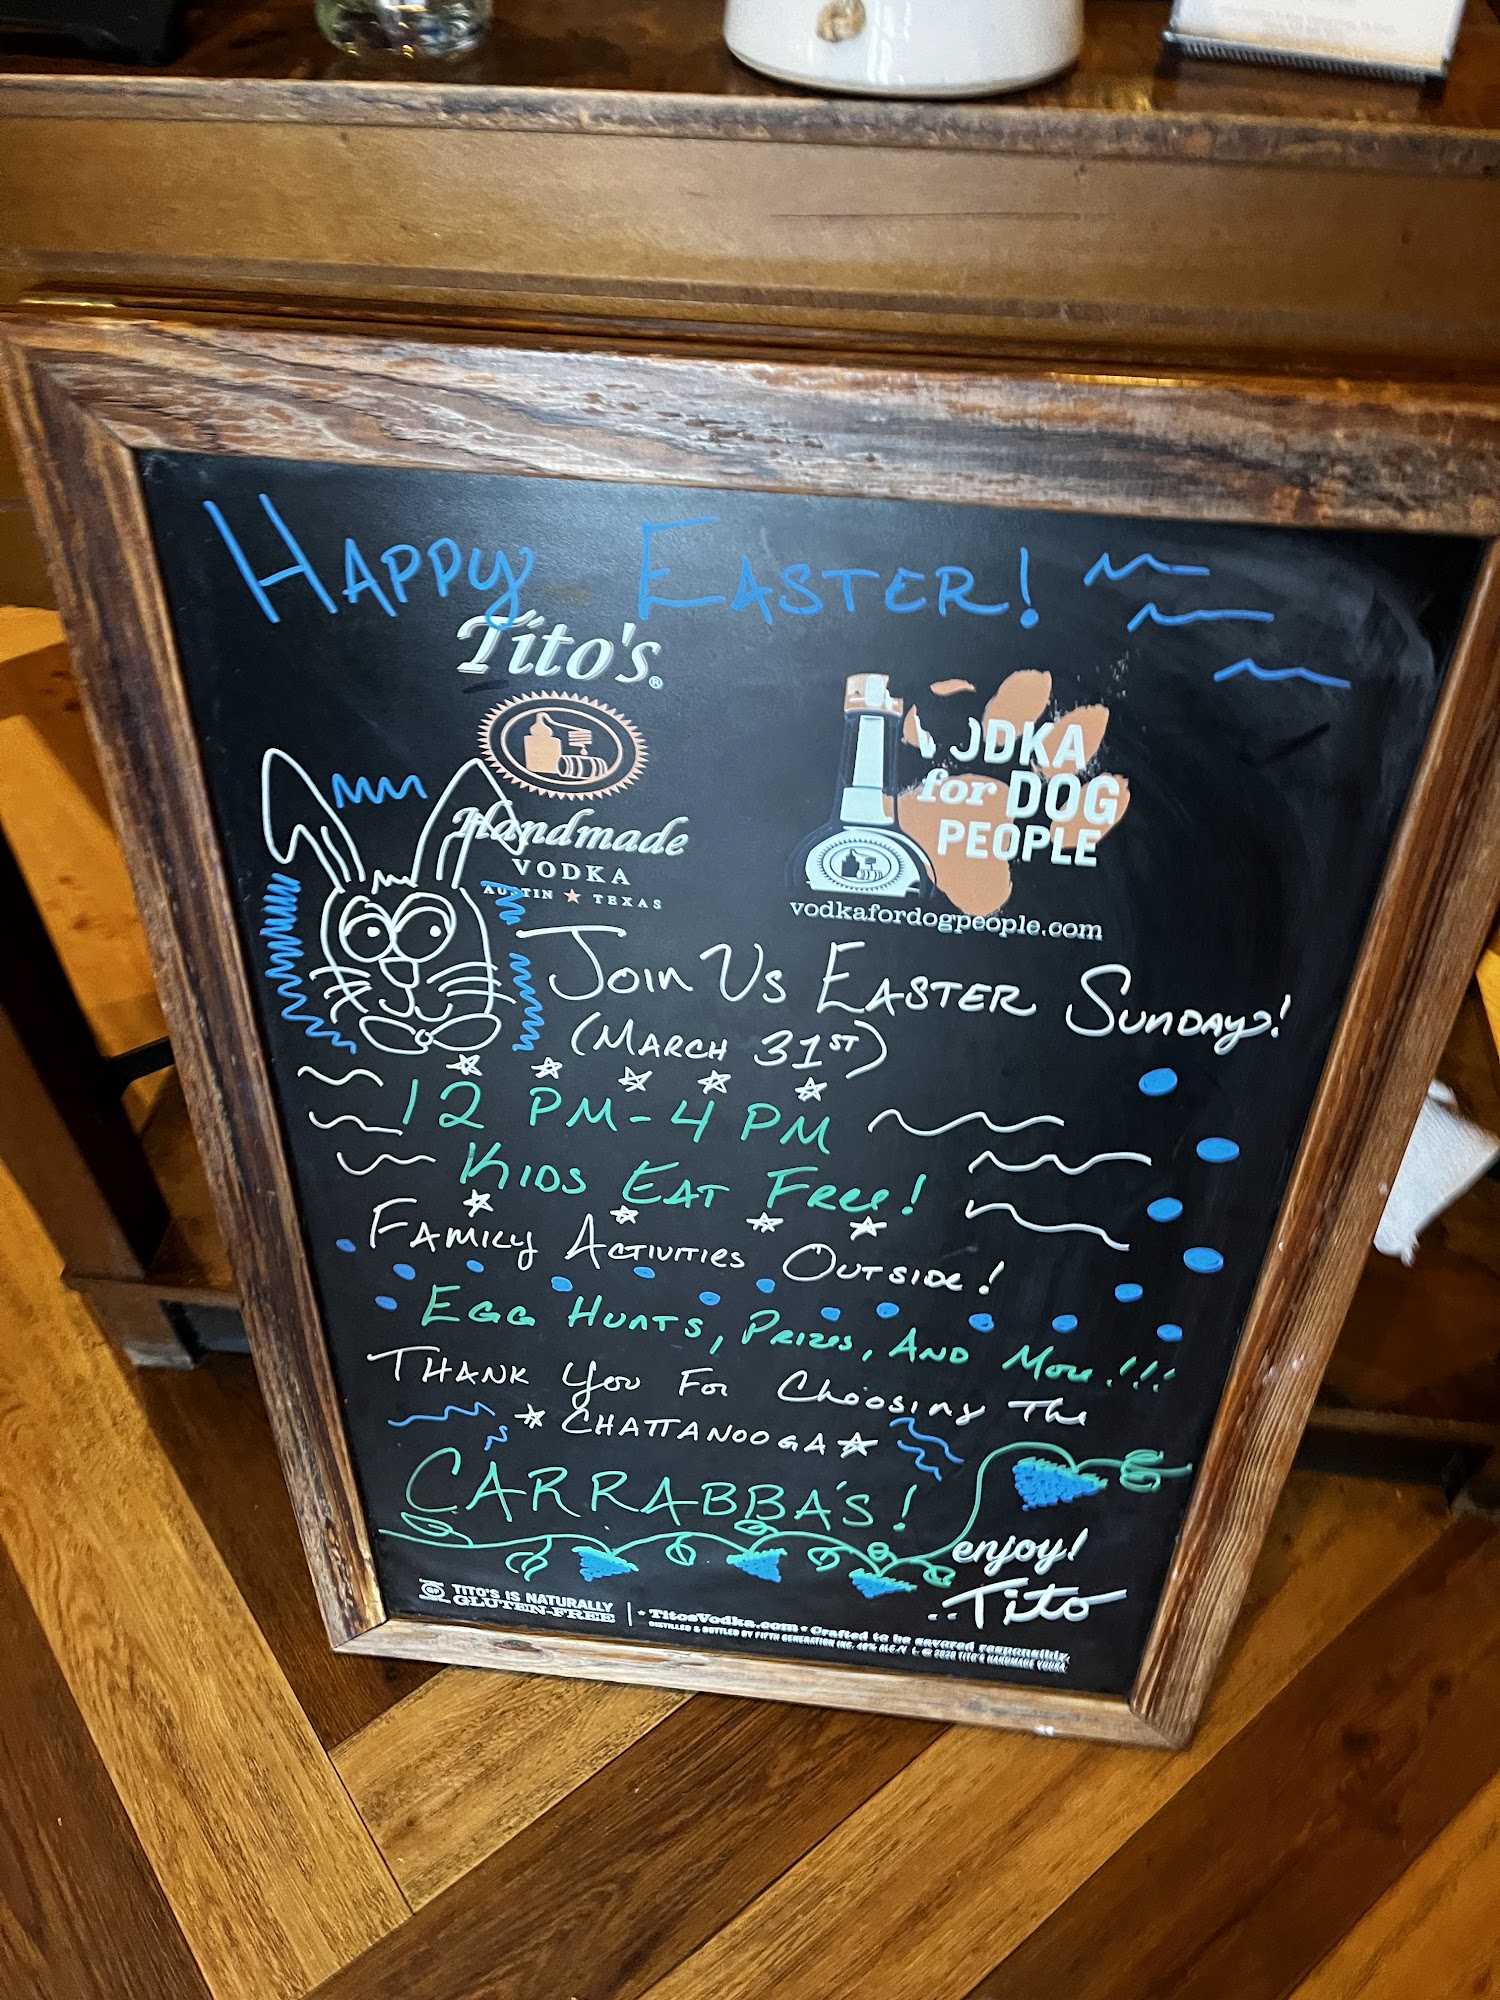 HAPPY EASTER!
Tito's®
Handmade
VODKA
AUSTIN ★ TEXAS
VODKA
for DOG
PEOPLE
vodkafordogpeople.com
JOIN US EASTER SUNDAY!
(MARCH 31ST)
12 PM-4 PM
KIDS EAT FREE!
FAMILY ACTIVITIES OUTSIDE!
EGG HUNTS, PRIZES, AND MORE!!!
THANK YOU FOR CHOOSING THE
CHATTANOOGA
CARRABBA'S!
enjoy!
..Tito
GF TITO'S IS NATURALLY
GLUTEN-FREE
• TitosVodka.com • Crafted to be savored responsibly.
DISTILLED & BOTTLED BY FIFTH GENERATION INC. 40% ALC./VOL. © 2020 TITO'S HANDMADE VODKA